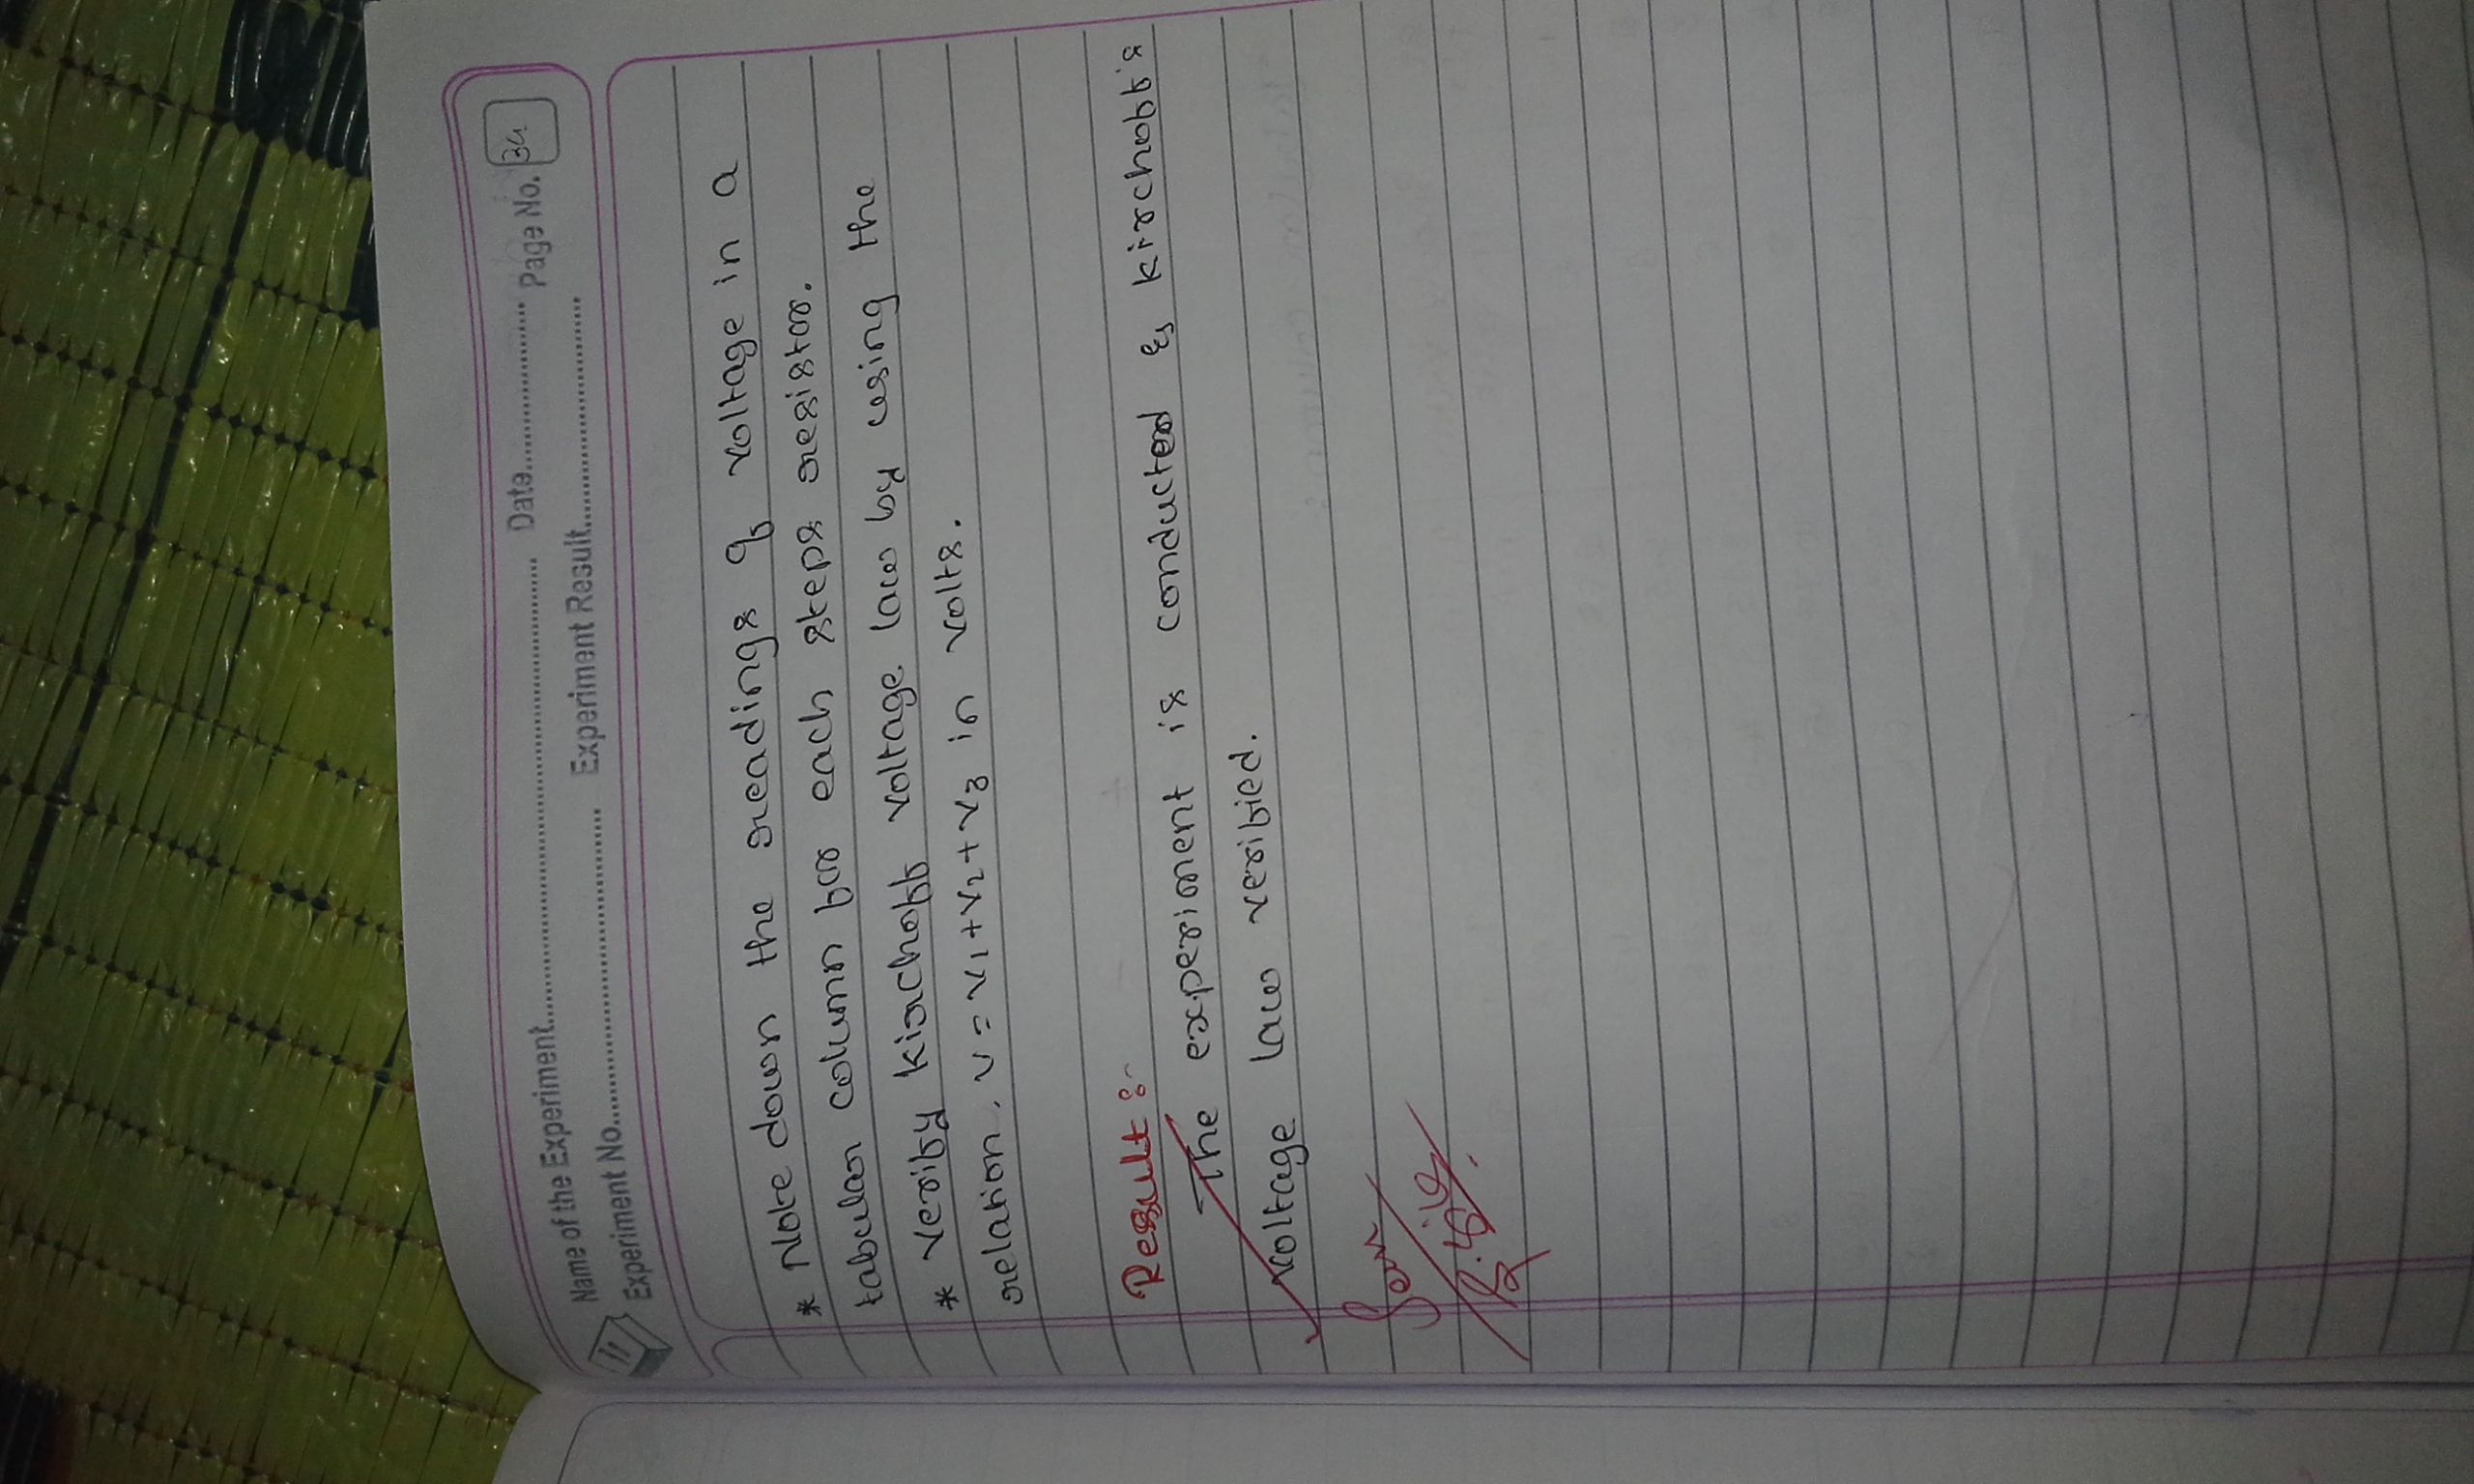 Name of the Experiment................ Date............ Page No. 34
Experiment No................ Experiment Result................
* Note down the readings of voltage in a
tabular column for each steps resistor.
* Verify Kirchoff voltage law by using the
relation, V = V1 + V2 + V3 in volts.
Result :-
The experiment is conducted & kirchoff's
voltage law verified.